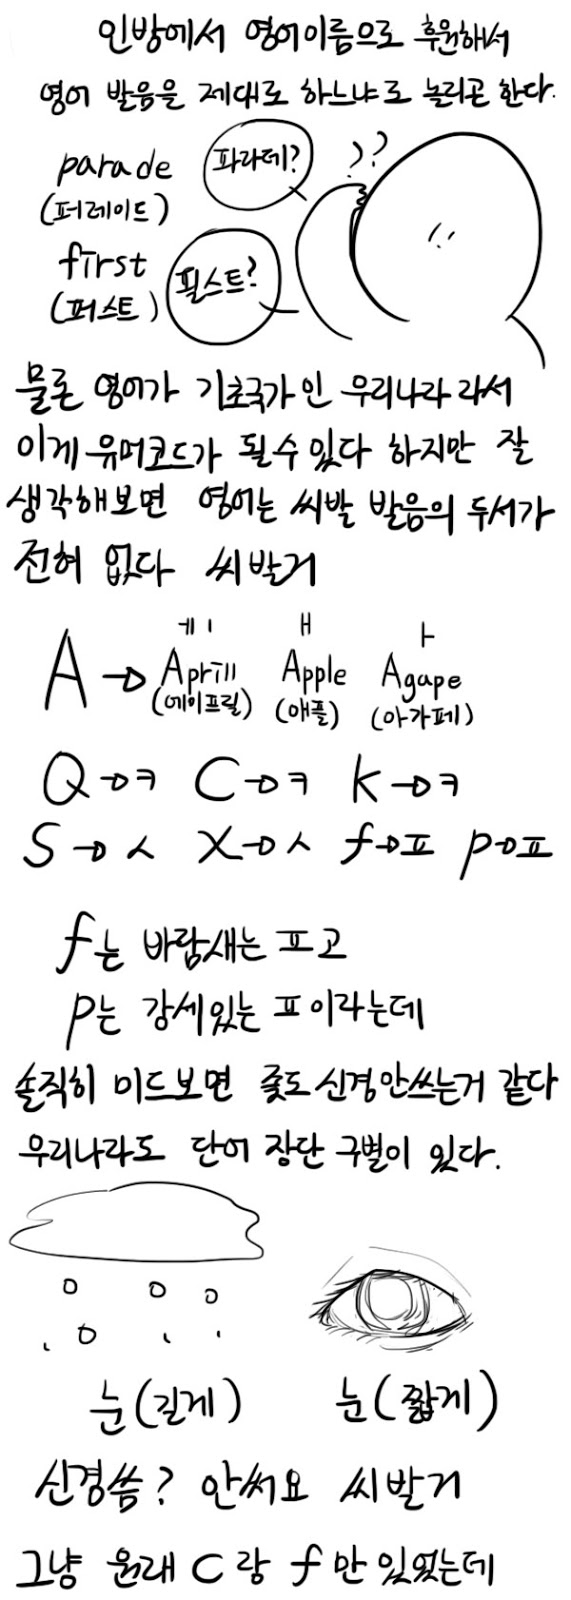 인방에서 영어이름으로 후원해서
영어 발음을 제대로 하느냐로 놀리곤 한다.
parade
(퍼레이드)
파라데?
??
first
(퍼스트)
필스트?
물론 영어가 기초국가인 우리나라라서
이게 유머코드가 될수있다 하지만 잘
생각해보면 영어는 씨발 발음의 두서가
전혀 없다 씨발거
ㅔㅣ ㅐ ㅏ
A → Aprill Apple Agape
(에이프릴) (애플) (아가페)
Q→ㅋ C→ㅋ K→ㅋ
S→ㅅ X→ㅅ f→ㅍ p→ㅍ
f는 바람새는 ㅍ고
p는 강세있는 ㅍ이라는데
솔직히 미드보면 좆도 신경안쓰는거 같다
우리나라도 단어 장단 구별이 있다.
눈(길게) 눈(짧게)
신경씀? 안써요 씨발거
그냥 원래 C랑 f만 있었는데